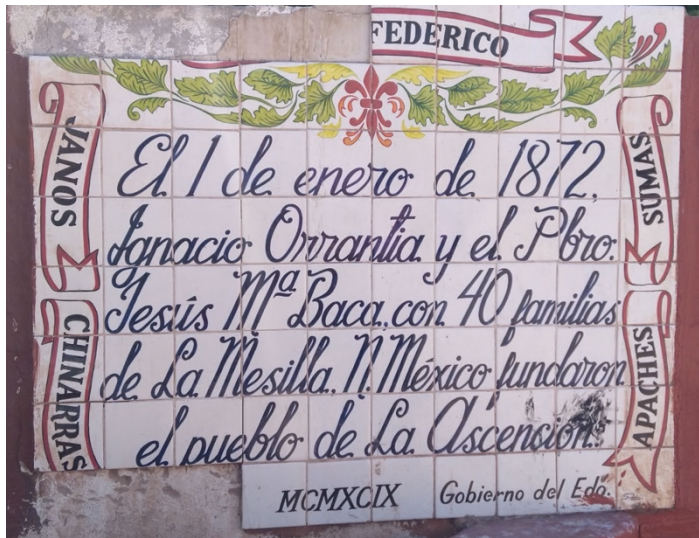 FEDERICO
JANOS
SUMAS
El 1 de enero de 1872,
Ignacio Orrantia y el Pbro.
Jesús Mª Baca, con 40 familias
de La Mesilla, N. México fundaron
el pueblo de La Ascención.
CHINARRAS
APACHES
MCMXCIX Gobierno del Edo.